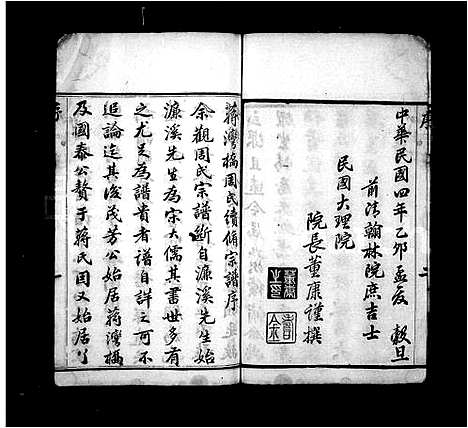 中華民國四年乙卯孟夏 穀旦
前清翰林院庶吉士
民國大理院
院長董康謹撰
蔣灣橋周氏續修宗譜序
余觀周氏宗譜斷自濂溪先生始
濂溪先生為宗大儒其書世多有
之尤足為譜貴者譜自詳之可不
追論迄其後茂芳公始居蔣灣橋
及國泰公贅于蔣氏因又始居
序
序
一
二